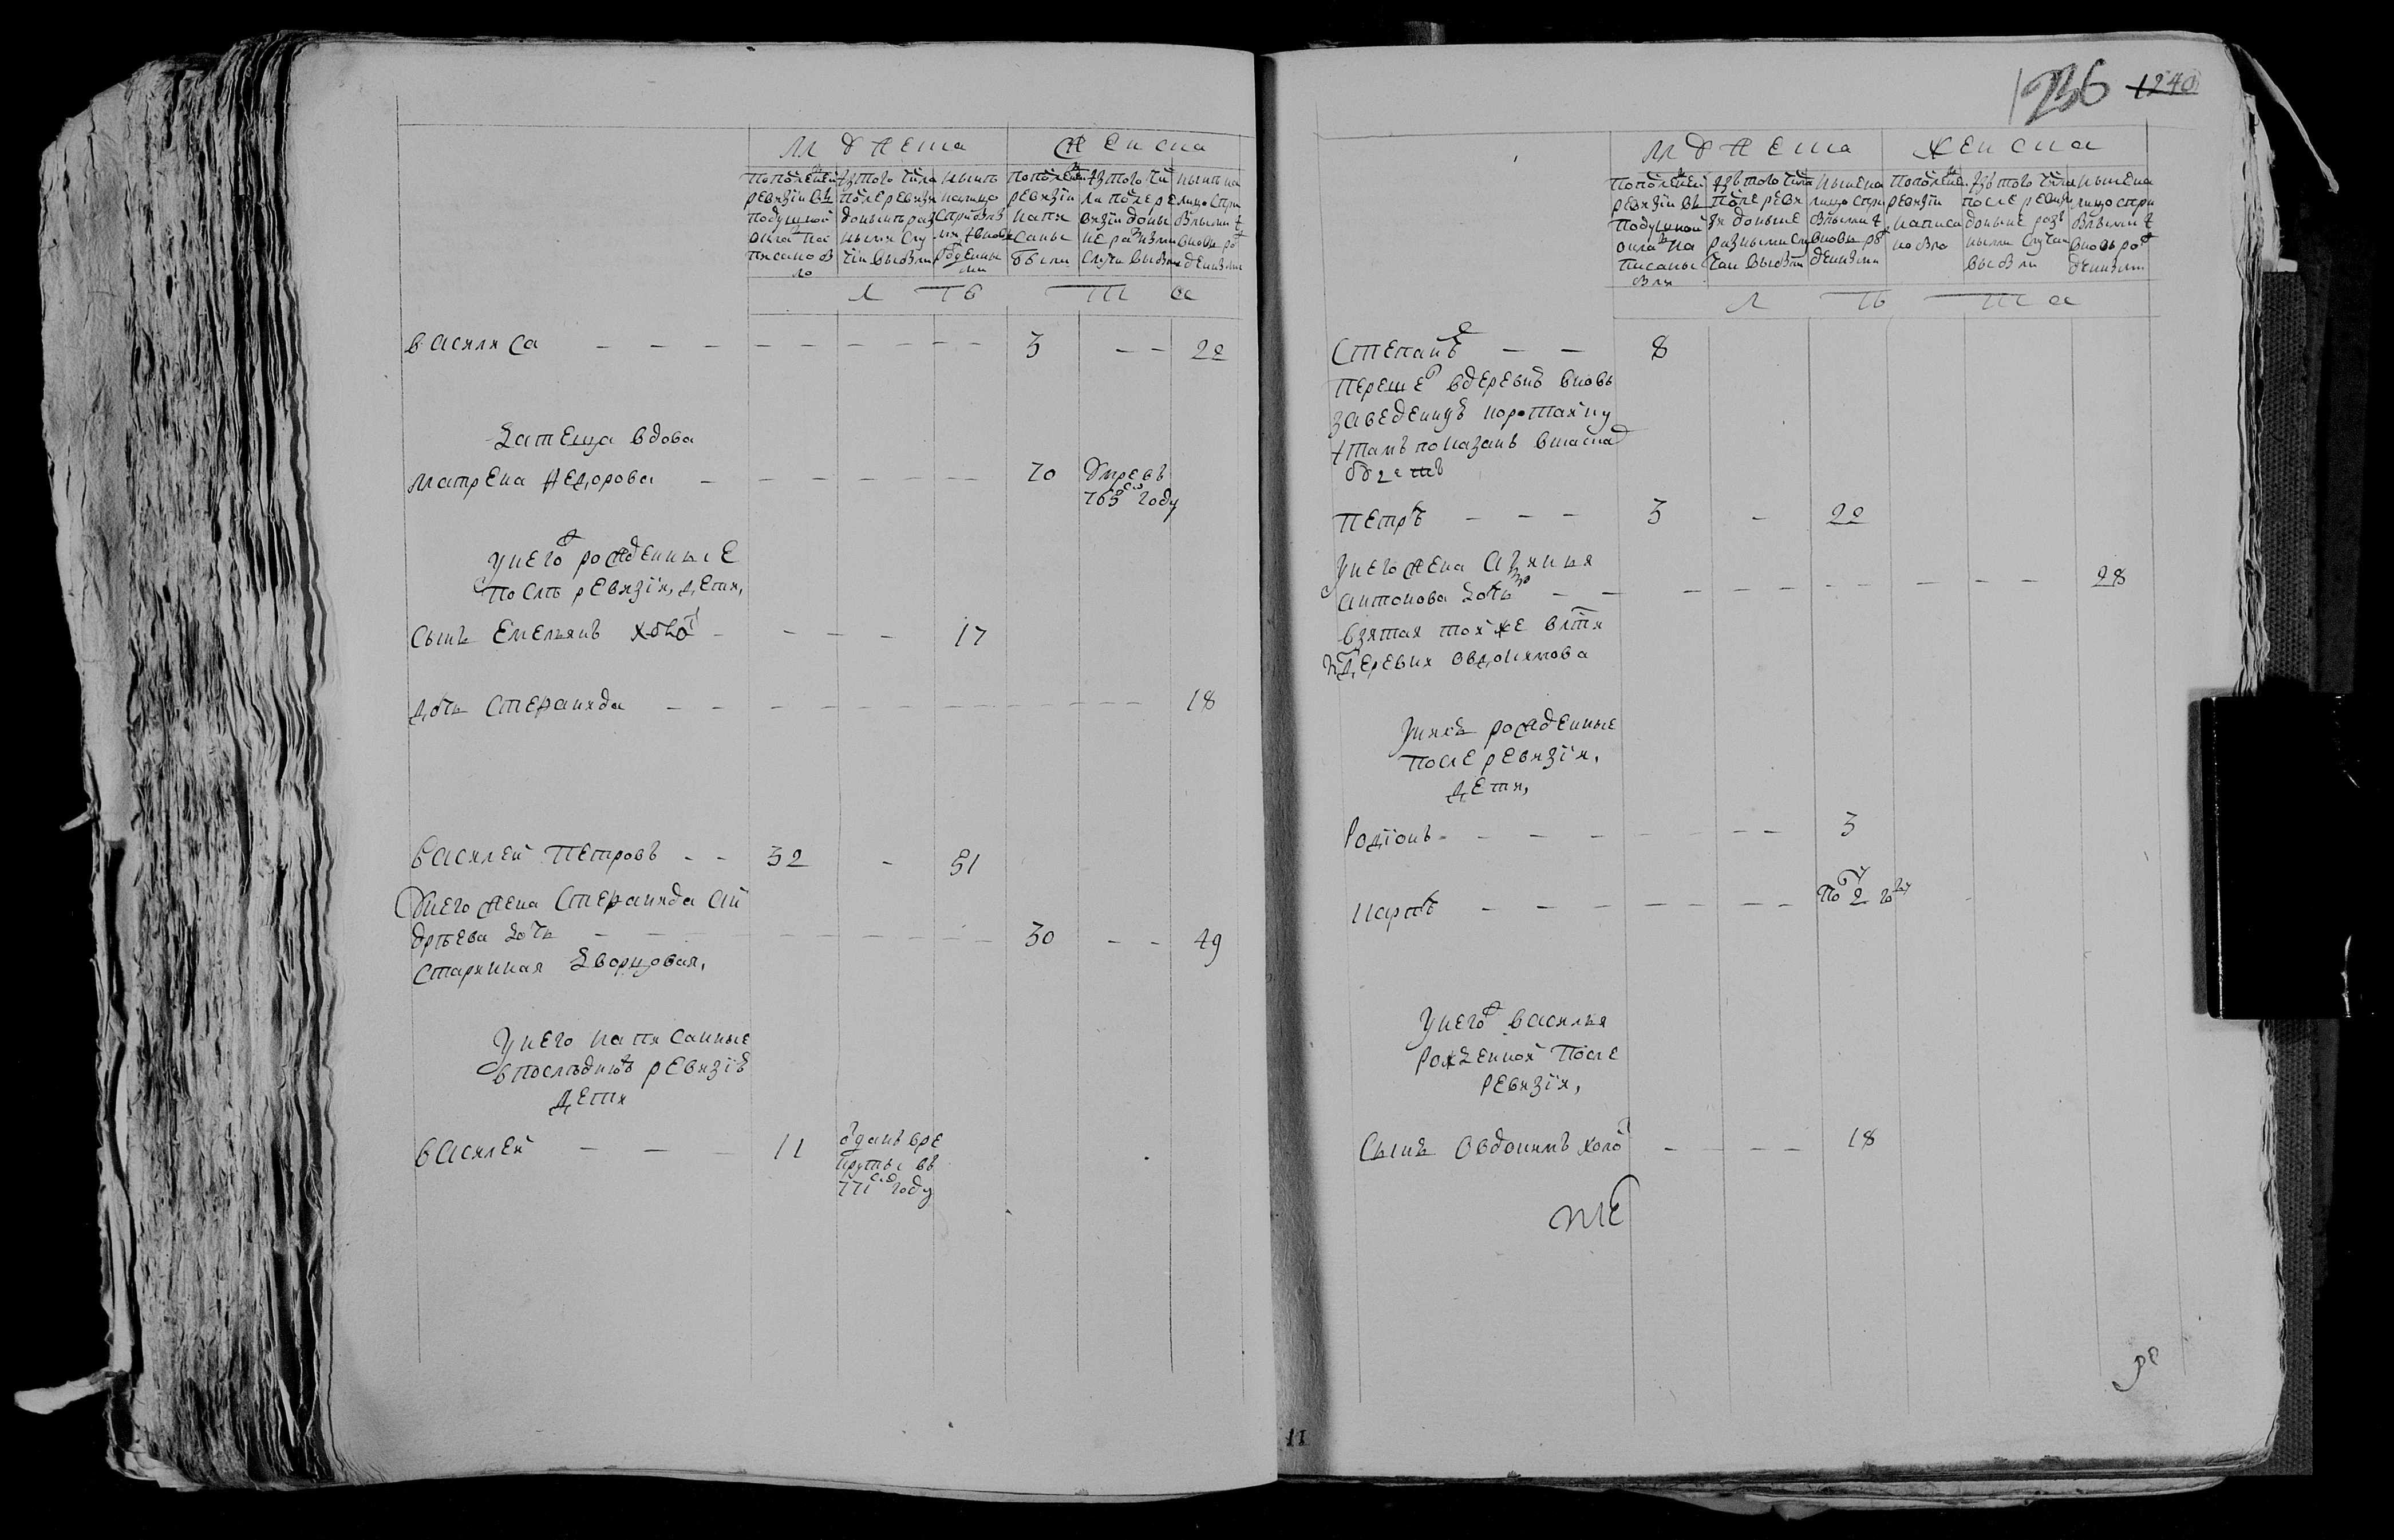 мужеска
женска
по последней
ревизіи въ
подушной
окладъ на
писано бы
ло
изъ того числа
после ревизи
доныне раз
ными слу
чаи выбыли
ныне
налицо
с прибылы
ми и вновь
рожденны
ми
по последней
ревизіи
напи
саны
были
изъ того чи
сла после ре
визіи доны
не разными
случаи выбыли
ныне на
лицо с при
былыми и
вновь ро
жденными
летъ
лета
василиса 3 22
зятеща вдова
матрена федорова 70 умре въ
763м году
у него ж рожденные
после ревизіи, дети,
сынъ Емельянъ холо 17
дочь Степанида 18
василей Петровъ 32 51
У него жена Степанида ан
дреева дочь 30 49
старинная дворцовая,
у него написанные
в последнюю ревизію
дети
василей 11 отданъ в ре
круты въ
771м году
1236 1240
мужеска
женска
по последней
ревизіи въ
подушной
окладъ на
писаны
были
изъ того числа
после реви
зи доныне
разными слу
чаи выбыли
ныне на
лицо с при
былыми и
вновь ро
жденными
по последней
ревизіи
написа
но было
изъ того числа
после ревизіи
доныне раз
ными случаи
выбыли
ныне на
лицо с при
былыми и
вновь ро
жденными
летъ
лета
Степанъ 8
перешел в деревню вновь
заведенную
и тамъ показанъ
Петръ 3 22
у него жена
антонова дочь 28
взятая той же
из деревни овдокимова
у нихъ рожденные
после ревизіи,
дети,
Родіонъ 3
Карпъ по 2 году
у него ж василья
рожденной после
ревизіи,
Сынъ Овдокимъ холо 18
11